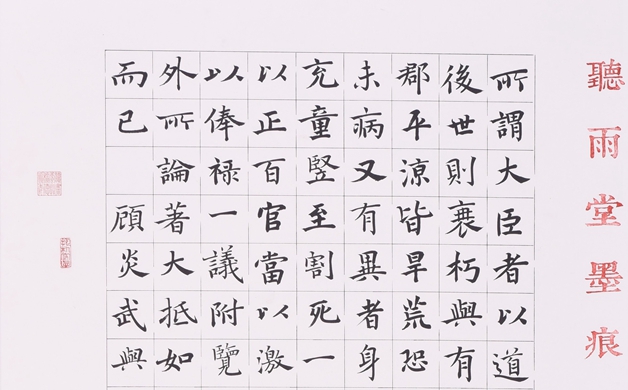 聽雨堂墨痕
所謂大臣者以道
後世則衰朽與有
郡平涼皆旱荒恐
未病又有異者身
充童豎至割死一
以正百官當以激
以俸禄一議附覽
外所論著大抵如
而已 顧炎武與